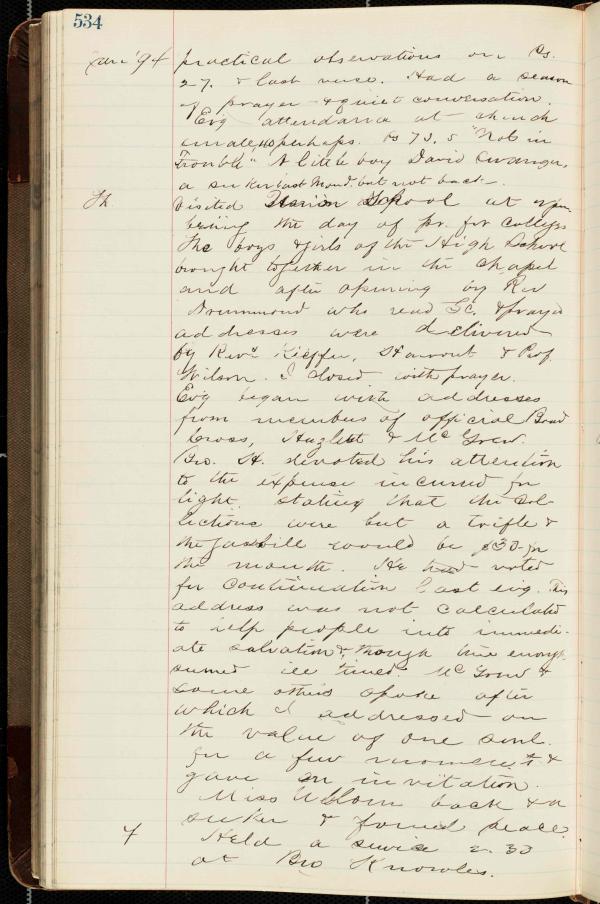 534
Jan '94 practical observations on Ps.
27. & last verse. Had a season
of prayer & quiet conversation.
Ev'g attendance at church
small, 40 perhaps. Ps 73, 5 "Not in
trouble". A little boy David
a seeker last Mond. but not back.
Th Visited Union School at
being the day of pr. for colleges
The boys & girls of the High School
brought together in the chapel
and after opening by Rev
Drummond who read Sc. & prayed
addresses were delivered
by Revs Kieffer, & Prof.
Wilson. I closed with prayer.
Evg began with addresses
from members of official Board
Cross, Hazlett & McGrew.
Bro. H. devoted his attention
to the expense incurred for
light. stating that the col-
lections were but a trifle &
the gas bill would be $30 for
the month. He had voted
for continuation last evg. This
address was not calculated
to help people into immedi-
ate salvation & though true enough
seemed ill timed. McGrew &
some others spoke after
which I addressed on
the value of one soul.
for a few moments &
gave an invitation.
Miss back & a
seeker & found peace.
F Held a service 2.30
at Bro Knowles.